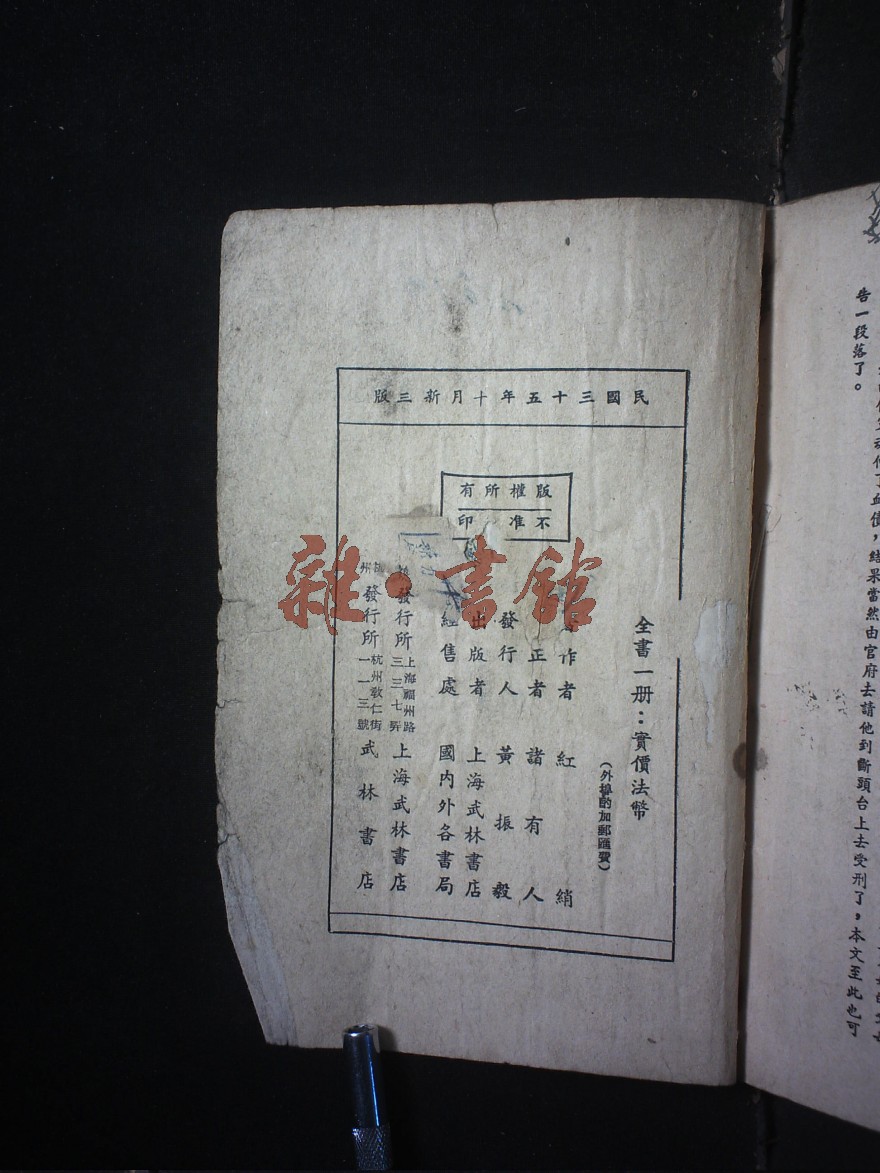 民國三十五年十月新三版
版權所有
不准印
全書一册：實價法幣
（外埠酌加郵匯費）
作者 紅綃
正者 諸有人
發行人 黃振毅
出版者 上海武林書店
經售處 國内外各書局
發行所 上海福州路三三七弄 上海武林書店
州發行所 杭州敎仁街一一三號 武林書店
雜·書館
血債，結果當然由官府去請他到斷頭台上去受刑了，本文至此也可
告一段落了。